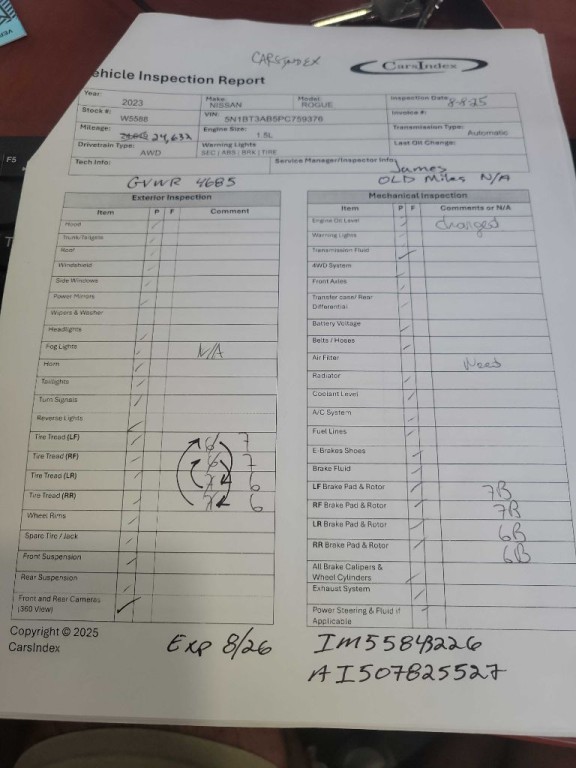 CARSINDEX
CarsIndex
ehicle Inspection Report
Year: 2023 Make: NISSAN Model: ROGUE Inspection Date: 8-8-25
Stock #: W5588 VIN: 5N1BT3AB5PC759376 Invoice #:
Mileage: 24,637 Engine Size: 1.5L Transmission Type: Automatic
Drivetrain Type: AWD Warning Lights SEC | ABS | BRK | TIRE Last Oil Change:
Tech Info: Service Manager/Inspector Info: James
GVWR 4685 OLD Miles N/A
Exterior Inspection
Item P F Comment
Hood
Trunk/Tailgate
Roof
Windshield
Side Windows
Power Mirrors
Wipers & Washer
Headlights
Fog Lights N/A
Horn
Taillights
Turn Signals
Reverse Lights
Tire Tread (LF) 6 7
Tire Tread (RF) 6 7
Tire Tread (LR) 7 6
Tire Tread (RR) 7 6
Wheel Rims
Spare Tire / Jack
Front Suspension
Rear Suspension
Front and Rear Cameras
(360 View)
Mechanical Inspection
Item P F Comments or N/A
Engine Oil Level changed
Warning Lights
Transmission Fluid
4WD System
Front Axles
Transfer case/ Rear
Differential
Battery Voltage
Belts / Hoses
Air Filter Need
Radiator
Coolant Level
A/C System
Fuel Lines
E-Brakes Shoes
Brake Fluid
LF Brake Pad & Rotor 7B
RF Brake Pad & Rotor 7B
LR Brake Pad & Rotor 6B
RR Brake Pad & Rotor 6B
All Brake Calipers &
Wheel Cylinders
Exhaust System
Power Steering & Fluid if
Applicable
Copyright © 2025
CarsIndex
Exp 8/26
IM55843226
AI507825527
F5